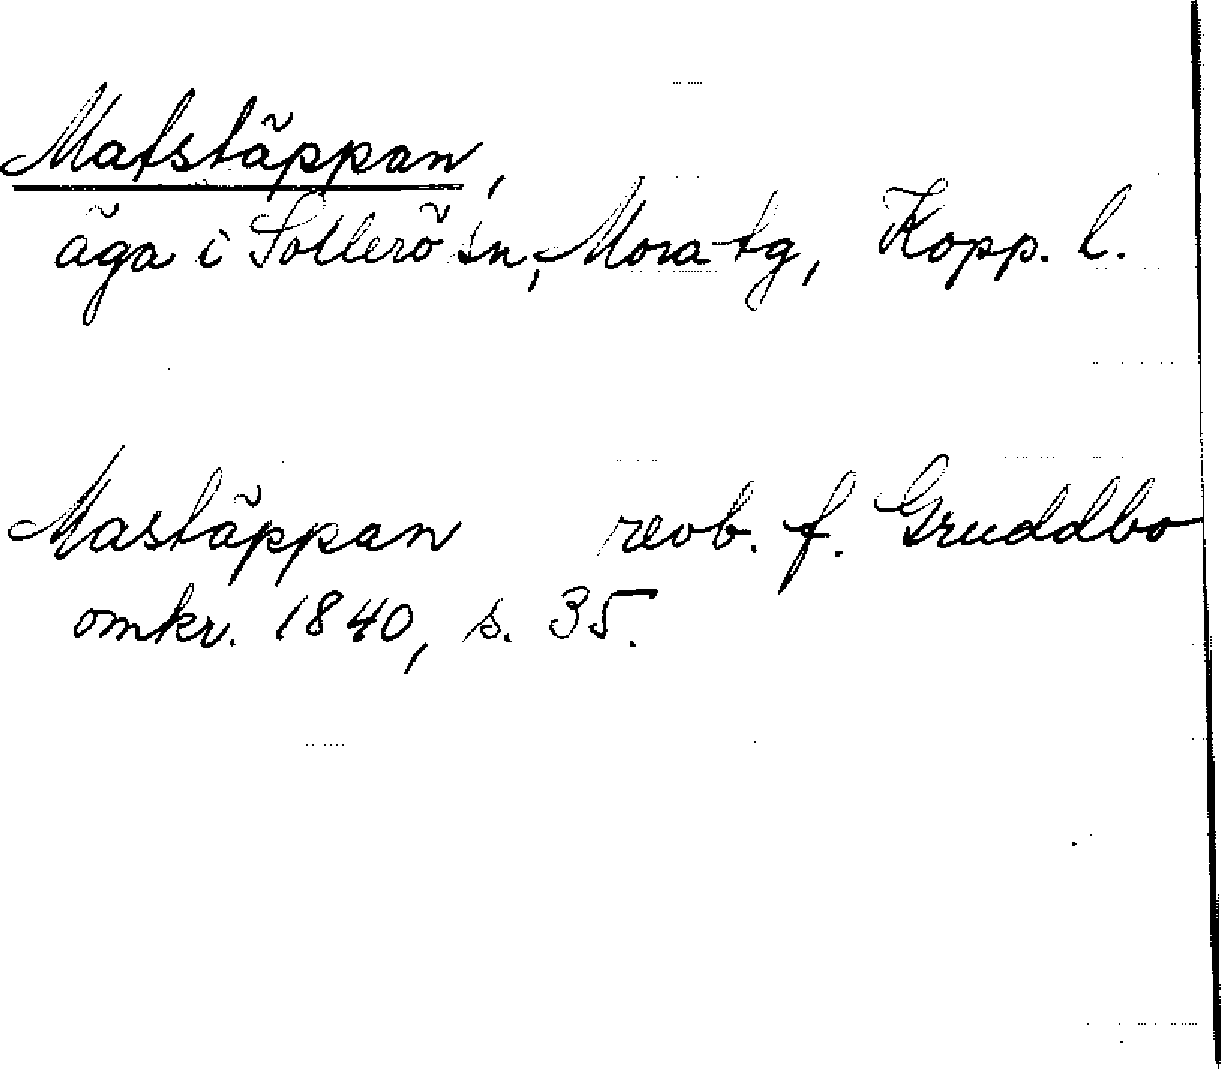 Matstäppan,
äga i Sollerö sn, Mora tg, Kopp. l.
Mastäppan revb. f. Gruddbo
omkr. 1840, s. 35.